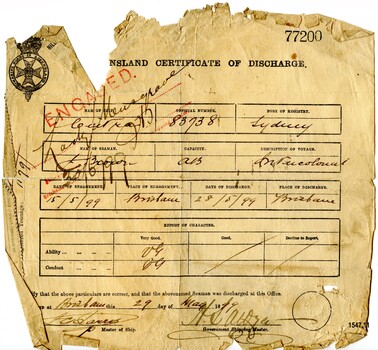 77200
NSLAND CERTIFICATE OF DISCHARGE.
ENGAGED.
Lady Musgrave
OFFICIAL NUMBER. PORT OF REGISTRY.
Centra 83738 Sydney
NAME OF SEAMAN. CAPACITY. DESCRIPTION OF VOYAGE.
AB Intercolonial
DATE OF ENGAGEMENT. PLACE OF ENGAGEMENT. DATE OF DISCHARGE. PLACE OF DISCHARGE.
15/5/99 Brisbane 28/5/99 Brisbane
REPORT OF CHARACTER.
Very Good. Good. Decline to Report.
Ability ... VG
Conduct VG
fy that the above particulars are correct, and that the abovenamed Seaman was discharged at this Office.
at Brisbane 29 day of May 1899
Master of Ship. Government Shipping Master.
1547.11